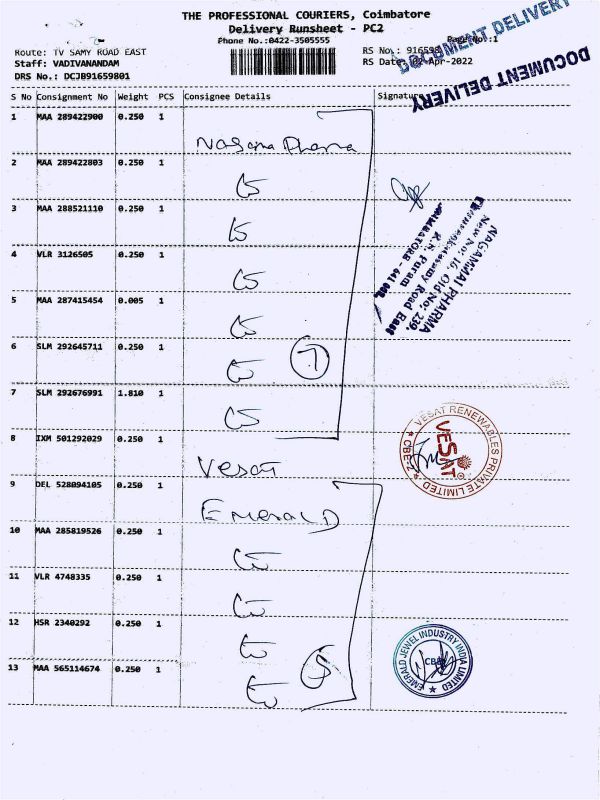 THE PROFESSIONAL COURIERS, Coimbatore
Delivery Runsheet - PC2
Phone No.:0422-3505555
Page No.:1
Route: TV SAMY ROAD EAST
RS No.: 916598
Staff: VADIVANANDAM
RS Date: 02-Apr-2022
DRS No.: DCJB91659801
DOCUMENT DELIVERY
DOCUMENT DELIVERY
S No Consignment No Weight PCS Consignee Details Signature
1 MAA 289422900 0.250 1
2 MAA 289422803 0.250 1
3 MAA 288521110 0.250 1
4 VLR 3126505 0.250 1
5 MAA 287415454 0.005 1
NAGAMMAI PHARMA
New No; 16, Old No; 239,
Road East
R.S. Puram
COIMBATORE - 641 002.
6 SLM 292645711 0.250 1 7
7 SLM 292676991 1.810 1
8 IXM 501292029 0.250 1 Vesat
VESAT RENEWABLES PRIVATE LIMITED
VESAT
CBE-2
9 DEL 528094105 0.250 1 EMERALD
10 MAA 285819526 0.250 1
11 VLR 4748335 0.250 1
12 HSR 2340292 0.250 1
13 MAA 565114674 0.250 1 5
EMERALD JEWEL INDUSTRY INDIA LIMITED